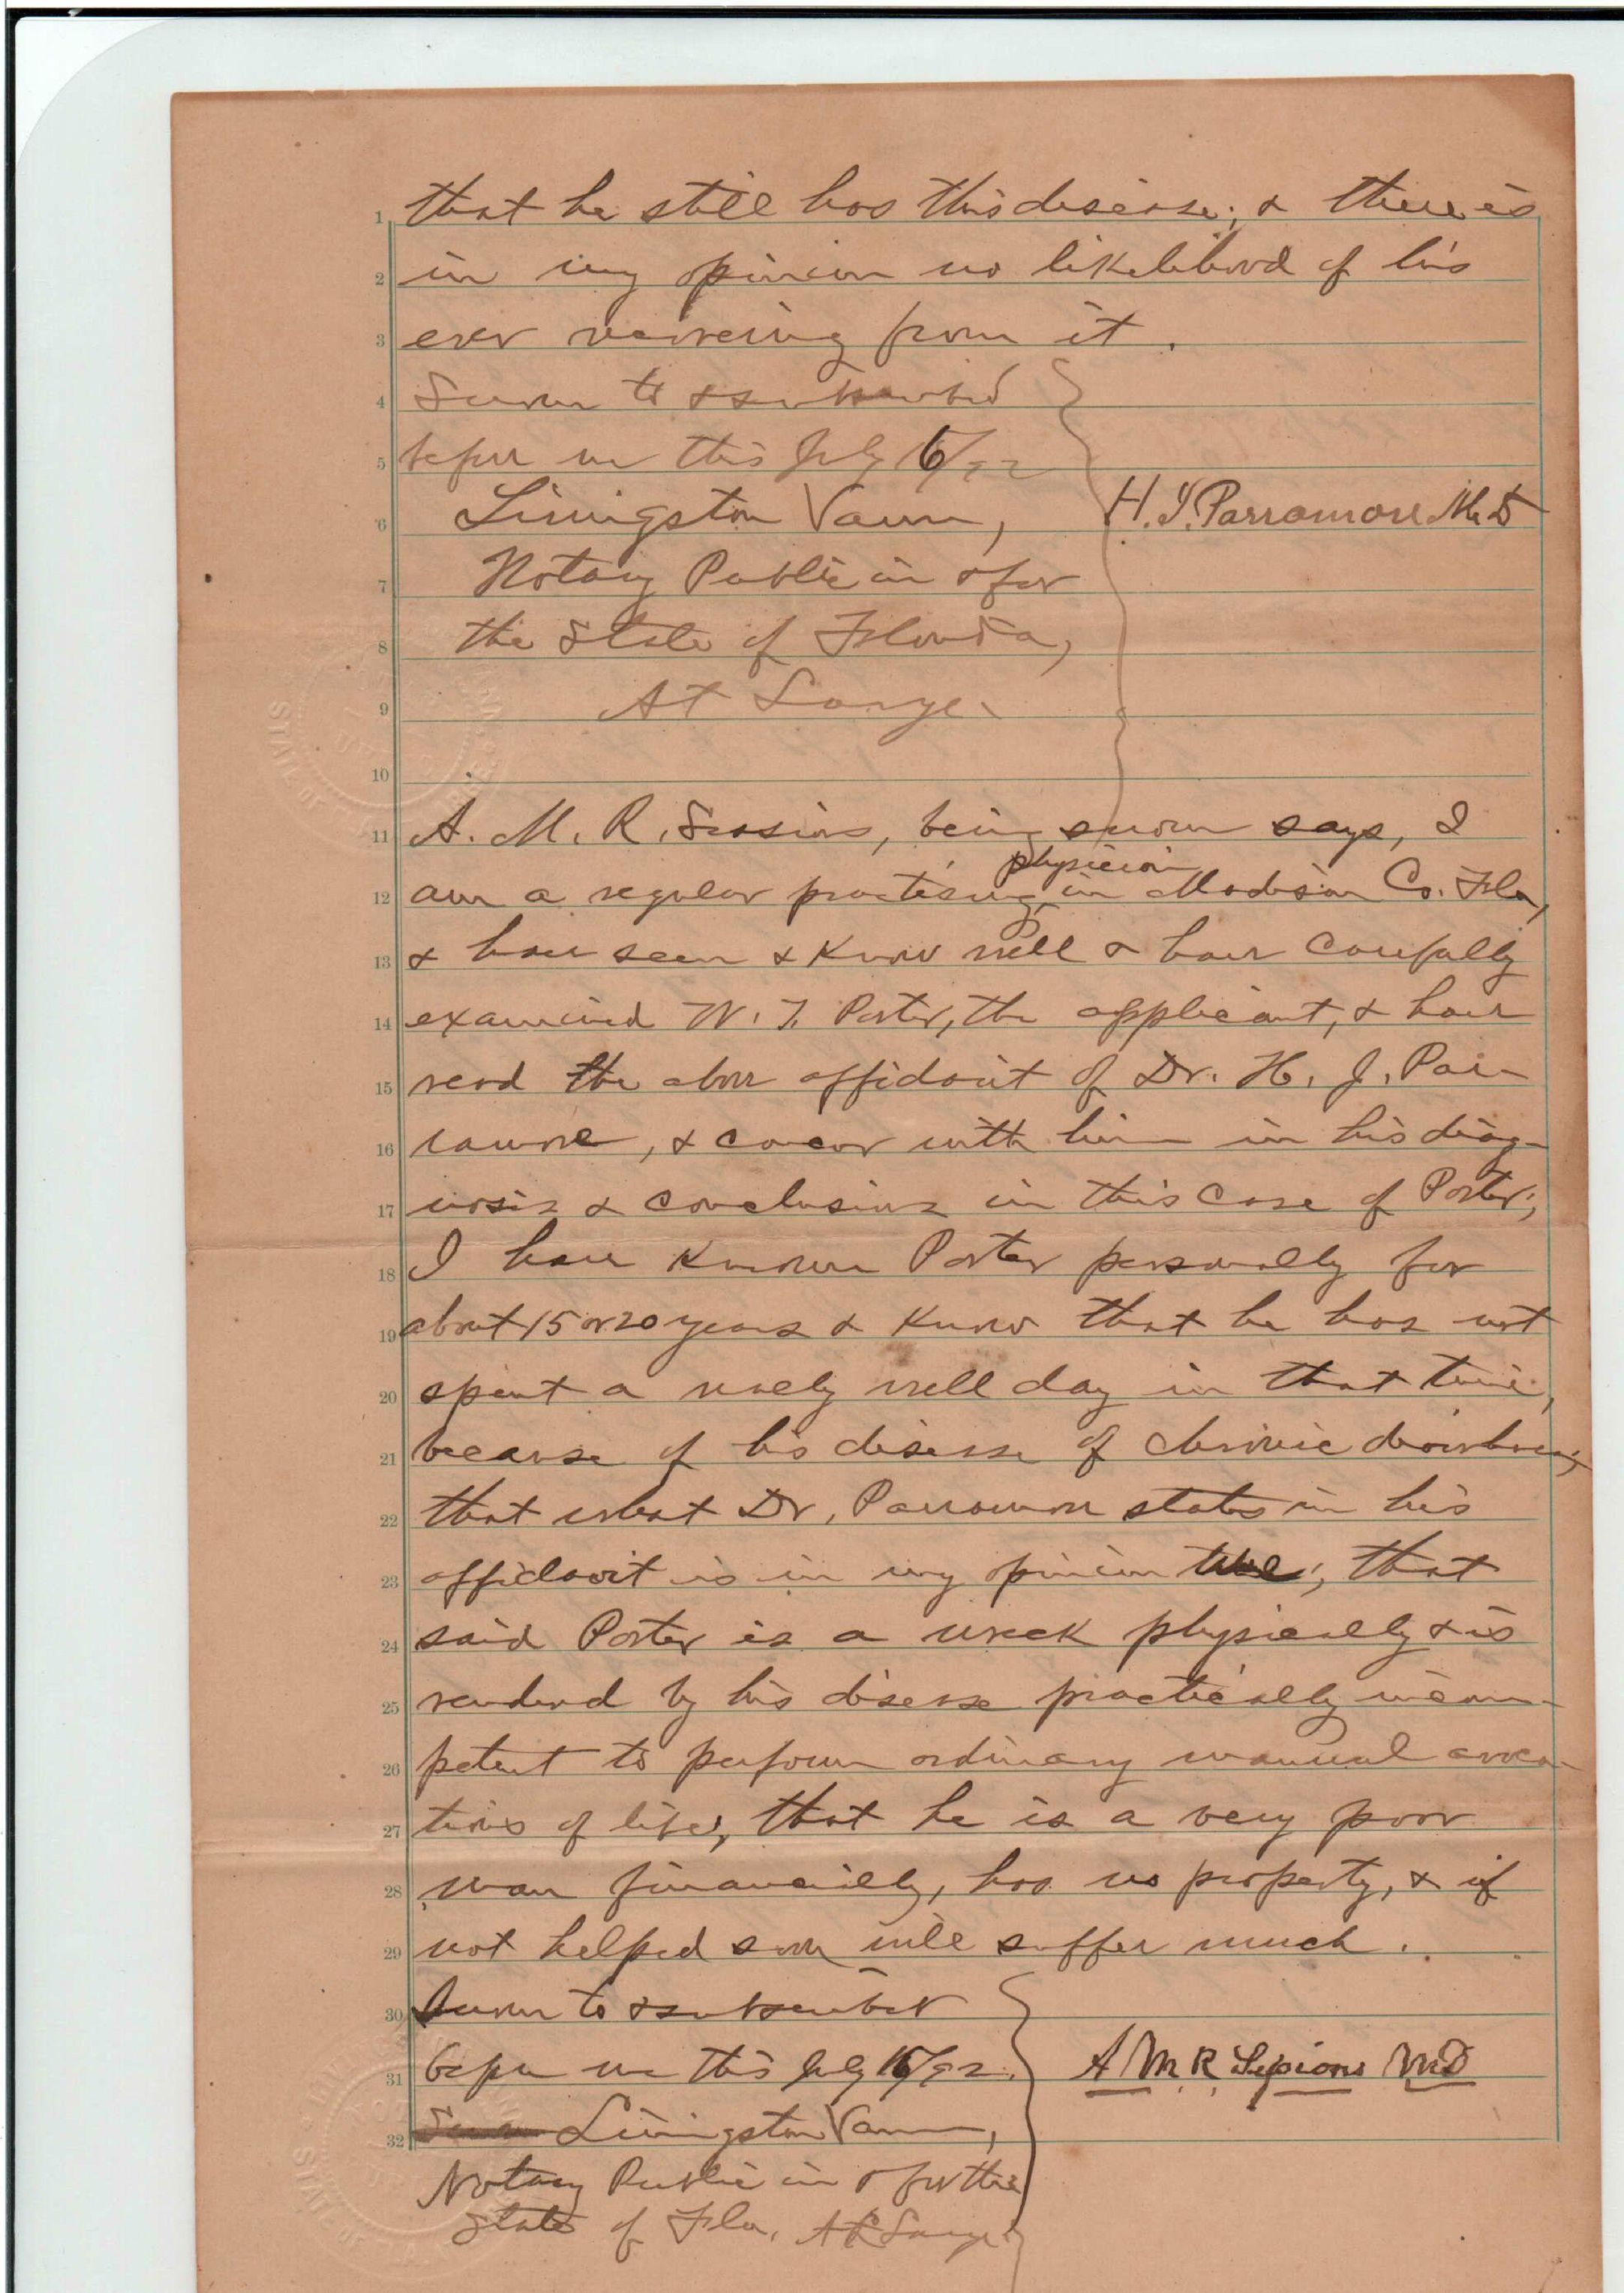 1 that he still has this disease; & there is
2 in my opinion no likelihood of his
3 ever recovering from it.
4 Sworn to & subscribed
5 before me this July 16/92
6 Livingston Vann, H. J. Parramore M.D
7 Notary Public in & for
8 the State of Florida,
9 At Large.
10
11 A. M. R. Sessions, being sworn says, I
physician
12 am a regular practising in Madison Co. Fla,
13 & have seen & know well & have carefully
14 examined W. T. Porter, the applicant, & have
15 read the above affidavit of Dr. H. J. Par-
16 ramore, & concur with him in his diag-
17 nosis & conclusions in this case of Porter;
18 I have known Porter personally for
19 about 15 or 20 years & know that he has not
20 spent a really well day in that time,
21 because of his disease of chronic diarrhoea;
22 that what Dr. Parramore states in his
23 affidavit is in my opinion true; that
24 said Porter is a wreck physically & is
25 rendered by his disease practically incom-
26 petent to perform ordinary manual avoca-
27 tions of life; that he is a very poor
28 man financially, has no property, & if
29 not helped soon will suffer much.
30 Sworn to & subscribed
31 before me this July 16/92. A M R Sessions MD
32 Livingston Vann,
Notary Public in & for the
State of Fla. At Large